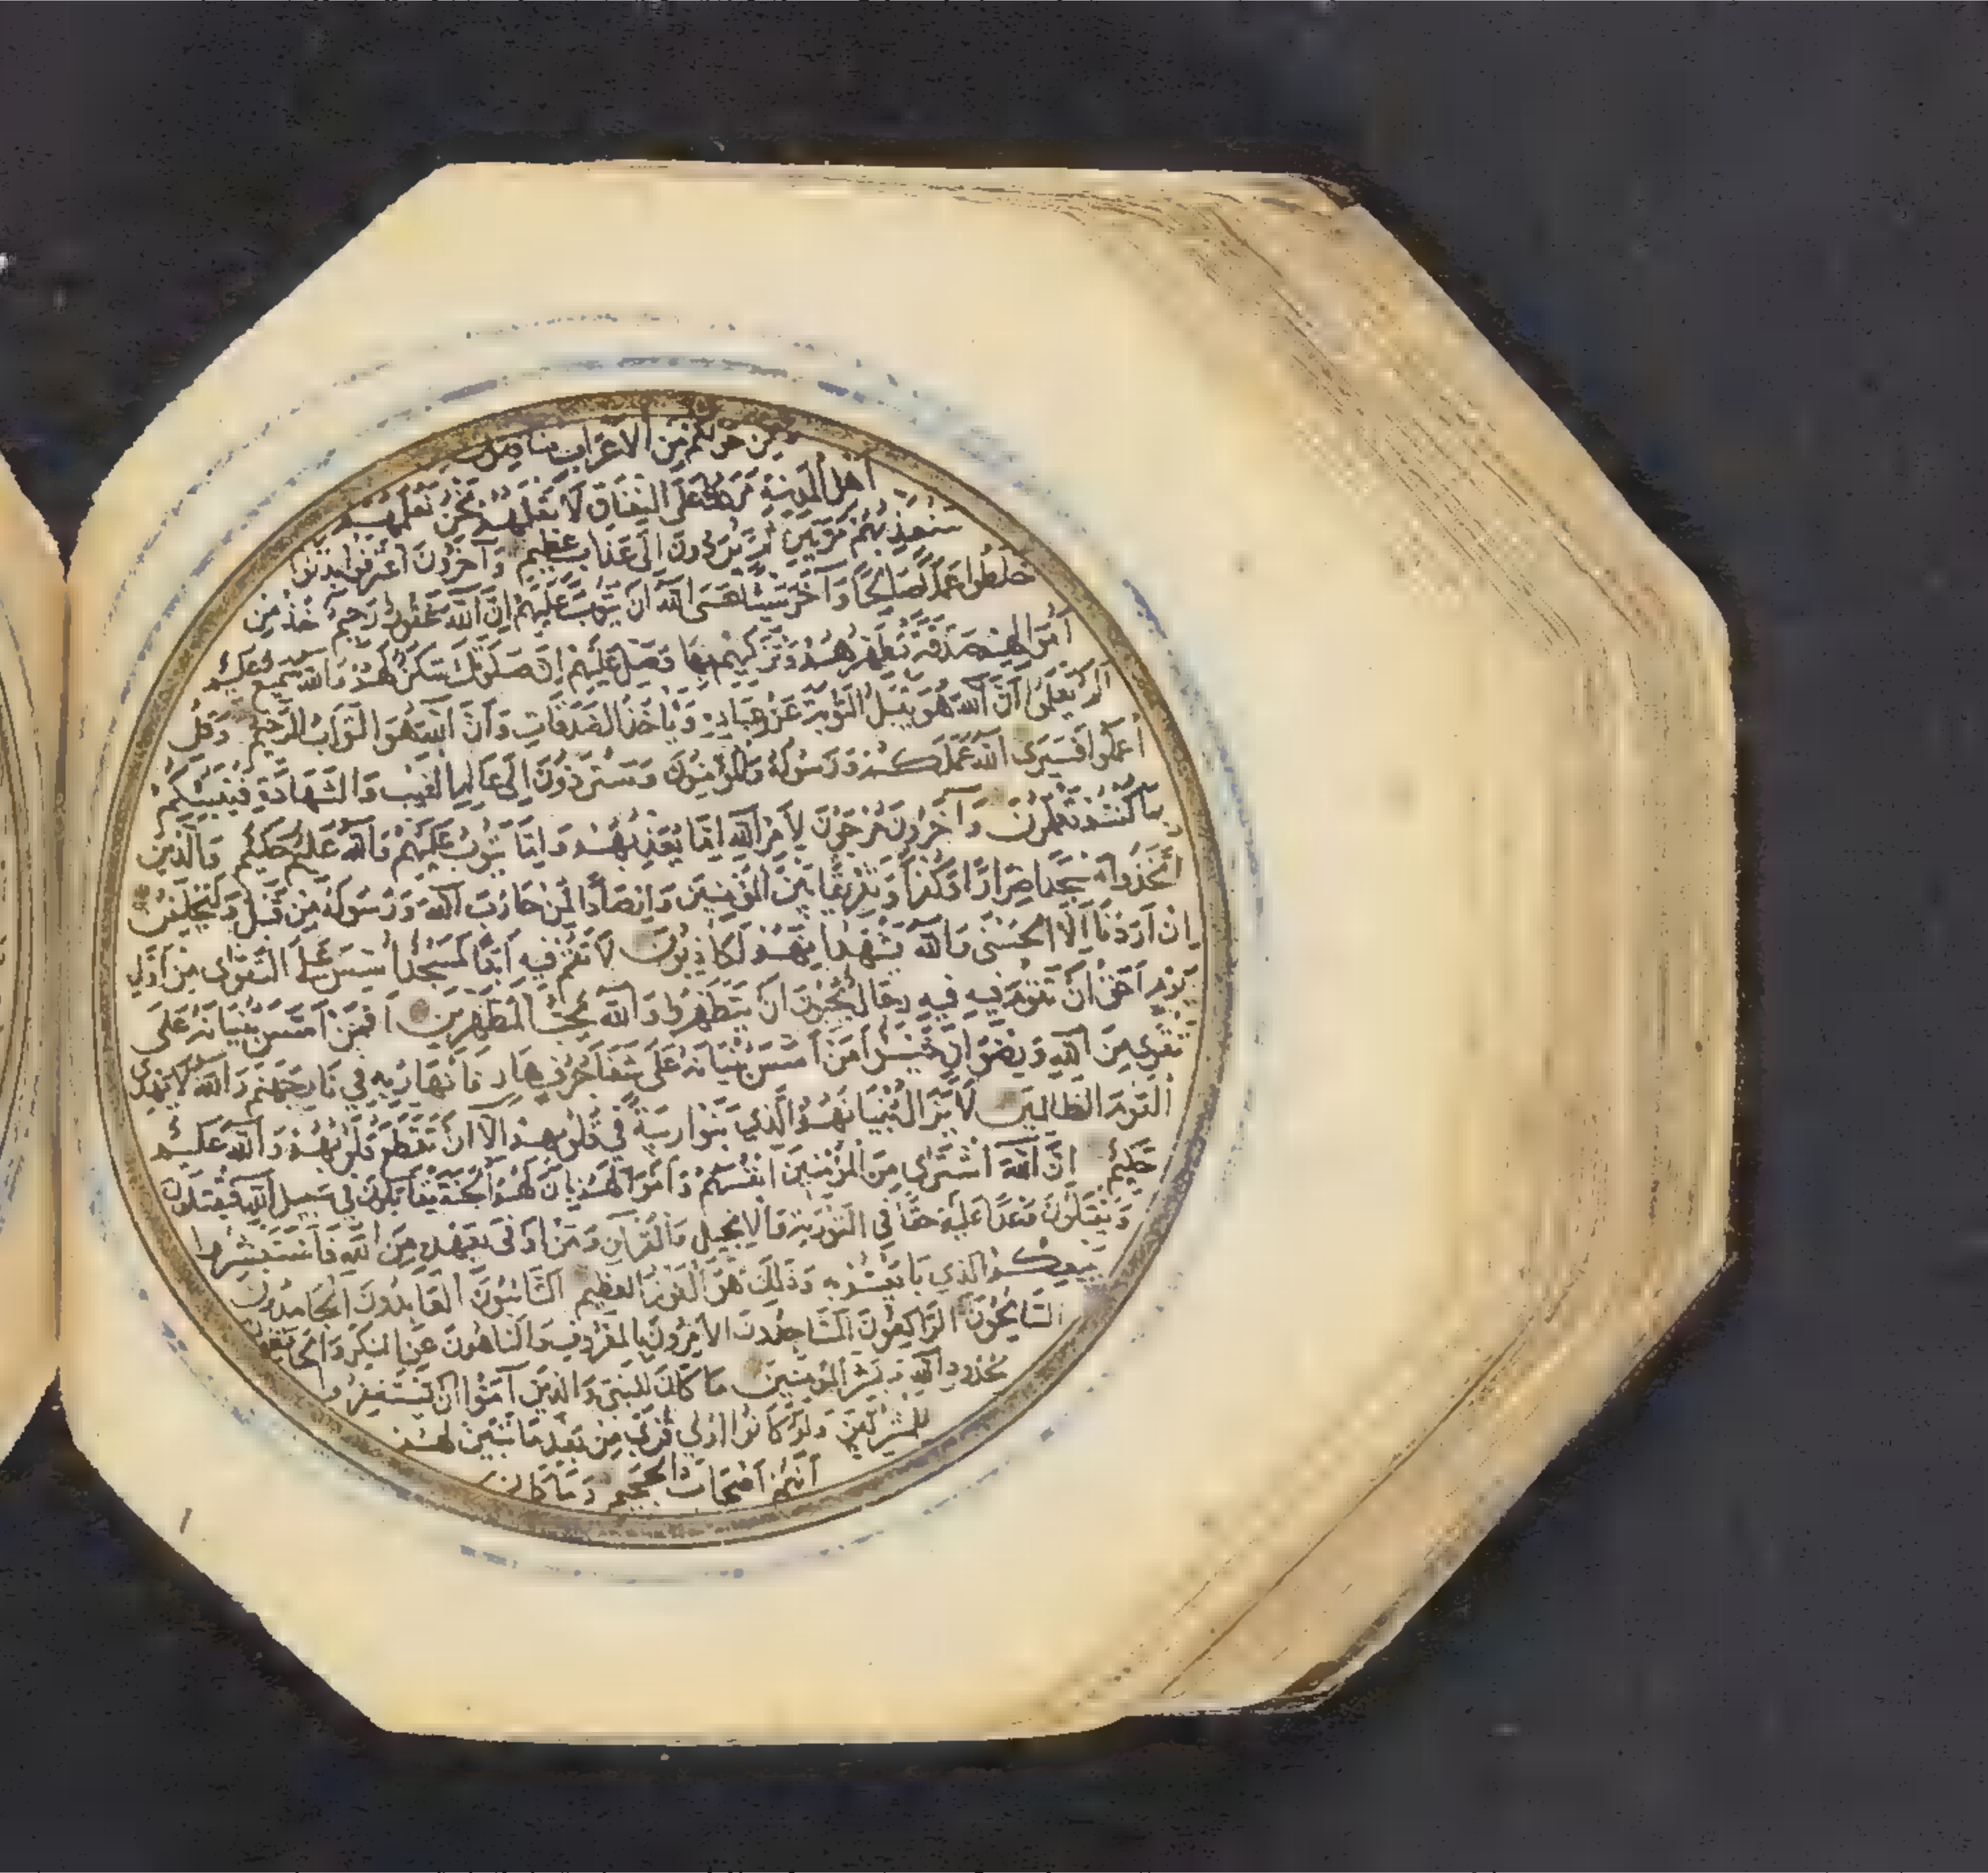 من حولكم من الاعراب منافقون ومن
أهل المدينة مردوا على النفاق لا تعلمهم نحن نعلمهم
سنعذبهم مرتين ثم يردون الى عذاب عظيم وآخرون اعترفوا بذنوبهم
خلطوا عملا صالحا وآخر سيئا عسى الله ان يتوب عليهم ان الله غفور رحيم خذ من
أموالهم صدقة تطهرهم وتزكيهم بها وصل عليهم ان صلوتك سكن لهم والله سميع عليم
ألم يعلموا أن الله هو يقبل التوبة عن عباده ويأخذ الصدقات وأن الله هو التواب الرحيم وقل
اعملوا فسيرى الله عملكم ورسوله والمؤمنون وستردون إلى عالم الغيب والشهادة فينبئكم
بما كنتم تعملون وآخرون مرجون لأمر الله إما يعذبهم وإما يتوب عليهم والله عليم حكيم والذين
اتخذوا مسجدا ضرارا وكفرا وتفريقا بين المؤمنين وارصادا لمن حارب الله ورسوله من قبل وليحلفن
ان اردنا الا الحسنى والله يشهد انهم لكاذبون لا تقم فيه ابدا لمسجد أسس على التقوى من أول
يوم أحق أن تقوم فيه فيه رجال يحبون ان يتطهروا والله يحب المطهرين أفمن أسس بنيانه على
تقوى من الله ورضوان خير أم من أسس بنيانه على شفا جرف هار فانهار به في نار جهنم والله لا يهدي
القوم الظالمين لا يزال بنيانهم الذي بنوا ريبة في قلوبهم الا ان تقطع قلوبهم والله عليم
حكيم إن الله اشترى من المؤمنين انفسهم وأموالهم بان لهم الجنة يقاتلون في سبيل الله فيقتلون
ويقتلون وعدا عليه حقا في التورية والإنجيل والقرآن ومن اوفى بعهده من الله فاستبشروا
ببيعكم الذي بايعتم به وذلك هو الفوز العظيم التائبون العابدون الحامدون
السائحون الراكعون الساجدون الآمرون بالمعروف والناهون عن المنكر والحافظون
لحدود الله وبشر المؤمنين ما كان للنبي والذين آمنوا ان يستغفروا
للمشركين ولو كانوا اولي قربى من بعد ما تبين لهم
أنهم اصحاب الجحيم وما كان